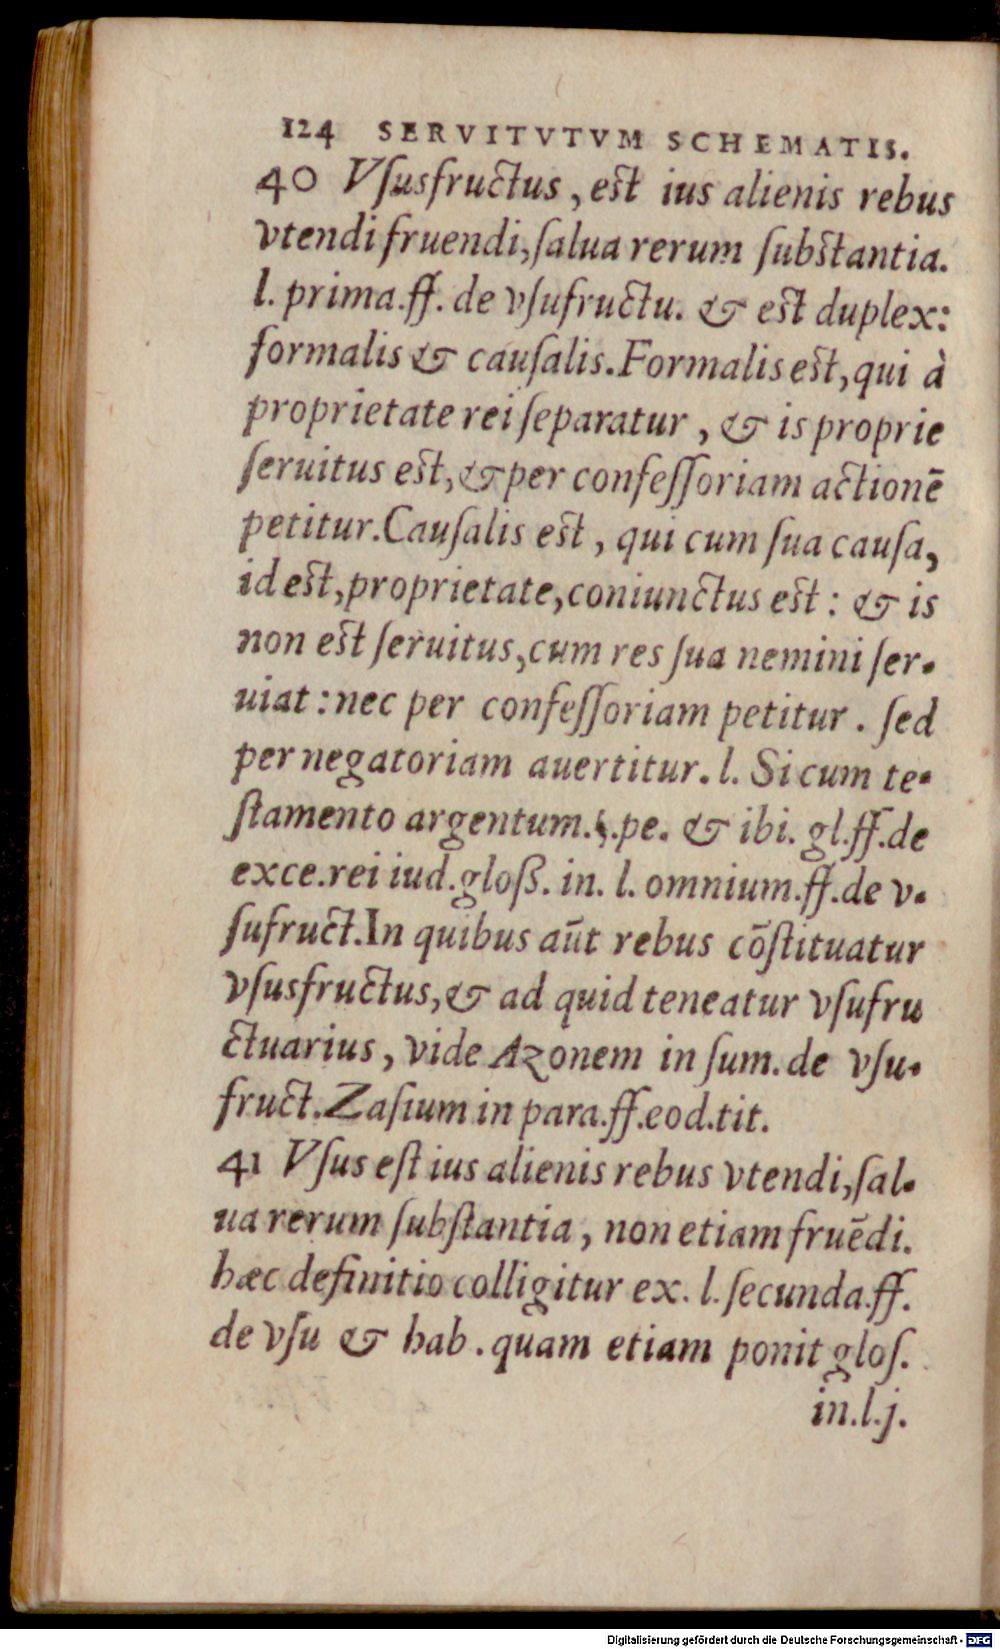 124 SERVITVTVM SCHEMATIS.
40 Vſusfructus, est ius alienis rebus
vtendi fruendi, ſalua rerum ſubstantia.
l. prima.ff. de vſufructu. & est duplex:
formalis & cauſalis. Formalis est, qui à
proprietate rei ſeparatur, & is proprie
ſeruitus est, & per confeſſoriam actionē
petitur. Cauſalis est, qui cum ſua cauſa,
id est, proprietate, coniunctus est: & is
non est ſeruitus, cum res ſua nemini ſer-
uiat: nec per confeſſoriam petitur. ſed
per negatoriam auertitur. l. Si cum te-
ſtamento argentum.§.pe. & ibi. gl.ff.de
exce.rei iud.gloß. in. l. omnium.ff.de v-
ſufruct.In quibus aūt rebus cōſtituatur
vſusfructus, & ad quid teneatur vſufru
ctuarius, vide Azonem in ſum. de vſu-
fruct. Zaſium in para.ff.eod.tit.
41 Vſus eſt ius alienis rebus vtendi, ſal-
ua rerum ſubſtantia, non etiam fruēdi.
hæc definitio colligitur ex. l. ſecunda.ff.
de vſu & hab. quam etiam ponit gloſ.
in.l.j.
Digitalisierung gefördert durch die Deutsche Forschungsgemeinschaft - DFG